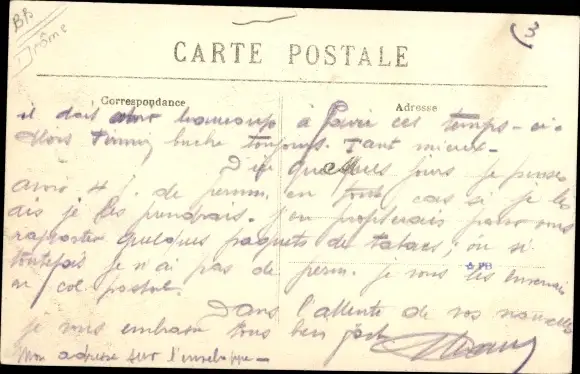 BB
Drôme
3
CARTE POSTALE
Correspondance
Adresse
il doit avoir beaucoup à faire ces temps-ci.
Alors buche toujours. Tant mieux-
D'ici quelques jours je pense
avoir 4 j. de permi, en tout cas si je les
dis je les prendrais. J'en profiterais pour vous
rapporter quelques paquets de tabacs; ou si
toutefois je n'ai pas de perm. je vous les enverrais
en col. postal.
Dans l'attente de vos nouvelles
je vous embrasse tous bien fort.
Mon adresse sur l'enveloppe-